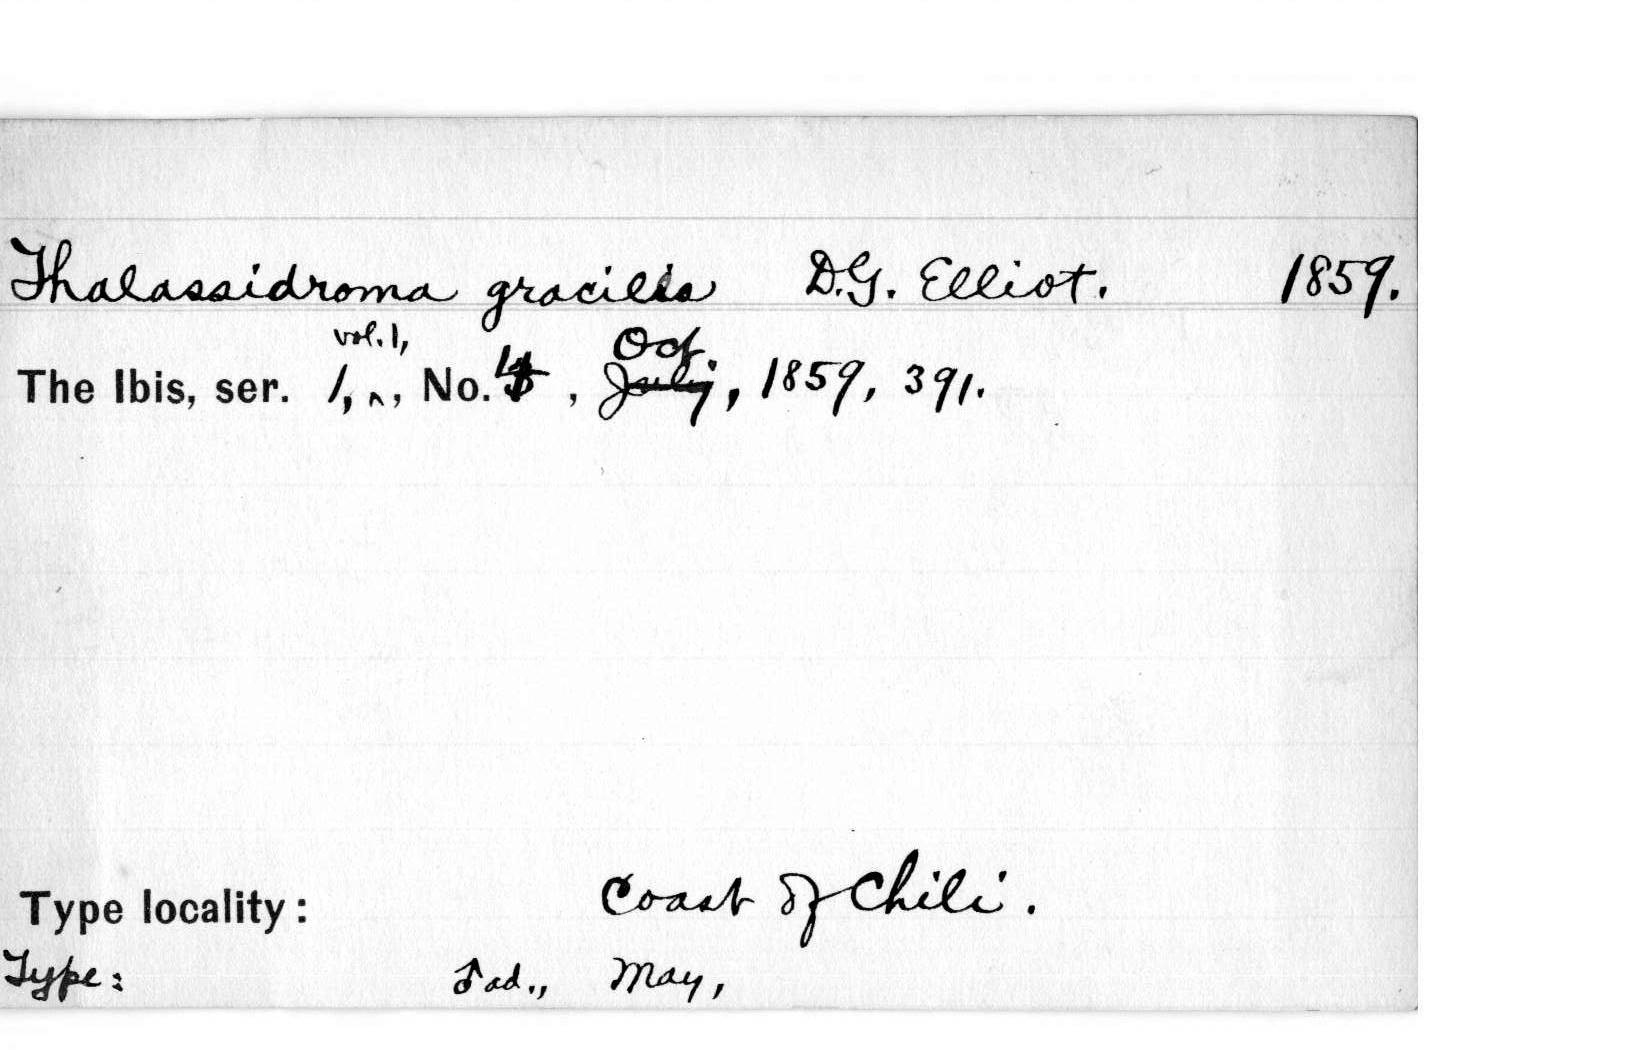 Thalassidroma gracilis D.G. Elliot. 1859.
vol. 1, Oct.
The Ibis, ser. 1, ^, No. 4, July, 1859, 391.
Type locality: Coast of Chili.
Type: ♂ ad., May,